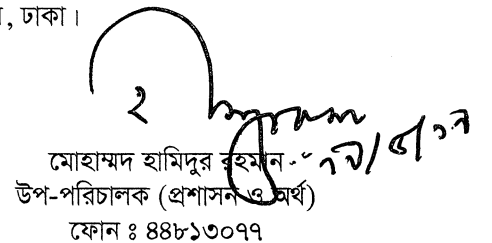 , ঢাকা।
মোহাম্মদ হামিদুর রহমান
উপ-পরিচালক (প্রশাসন ও অর্থ)
ফোন ঃ ৪৪৮১৩০৭৭